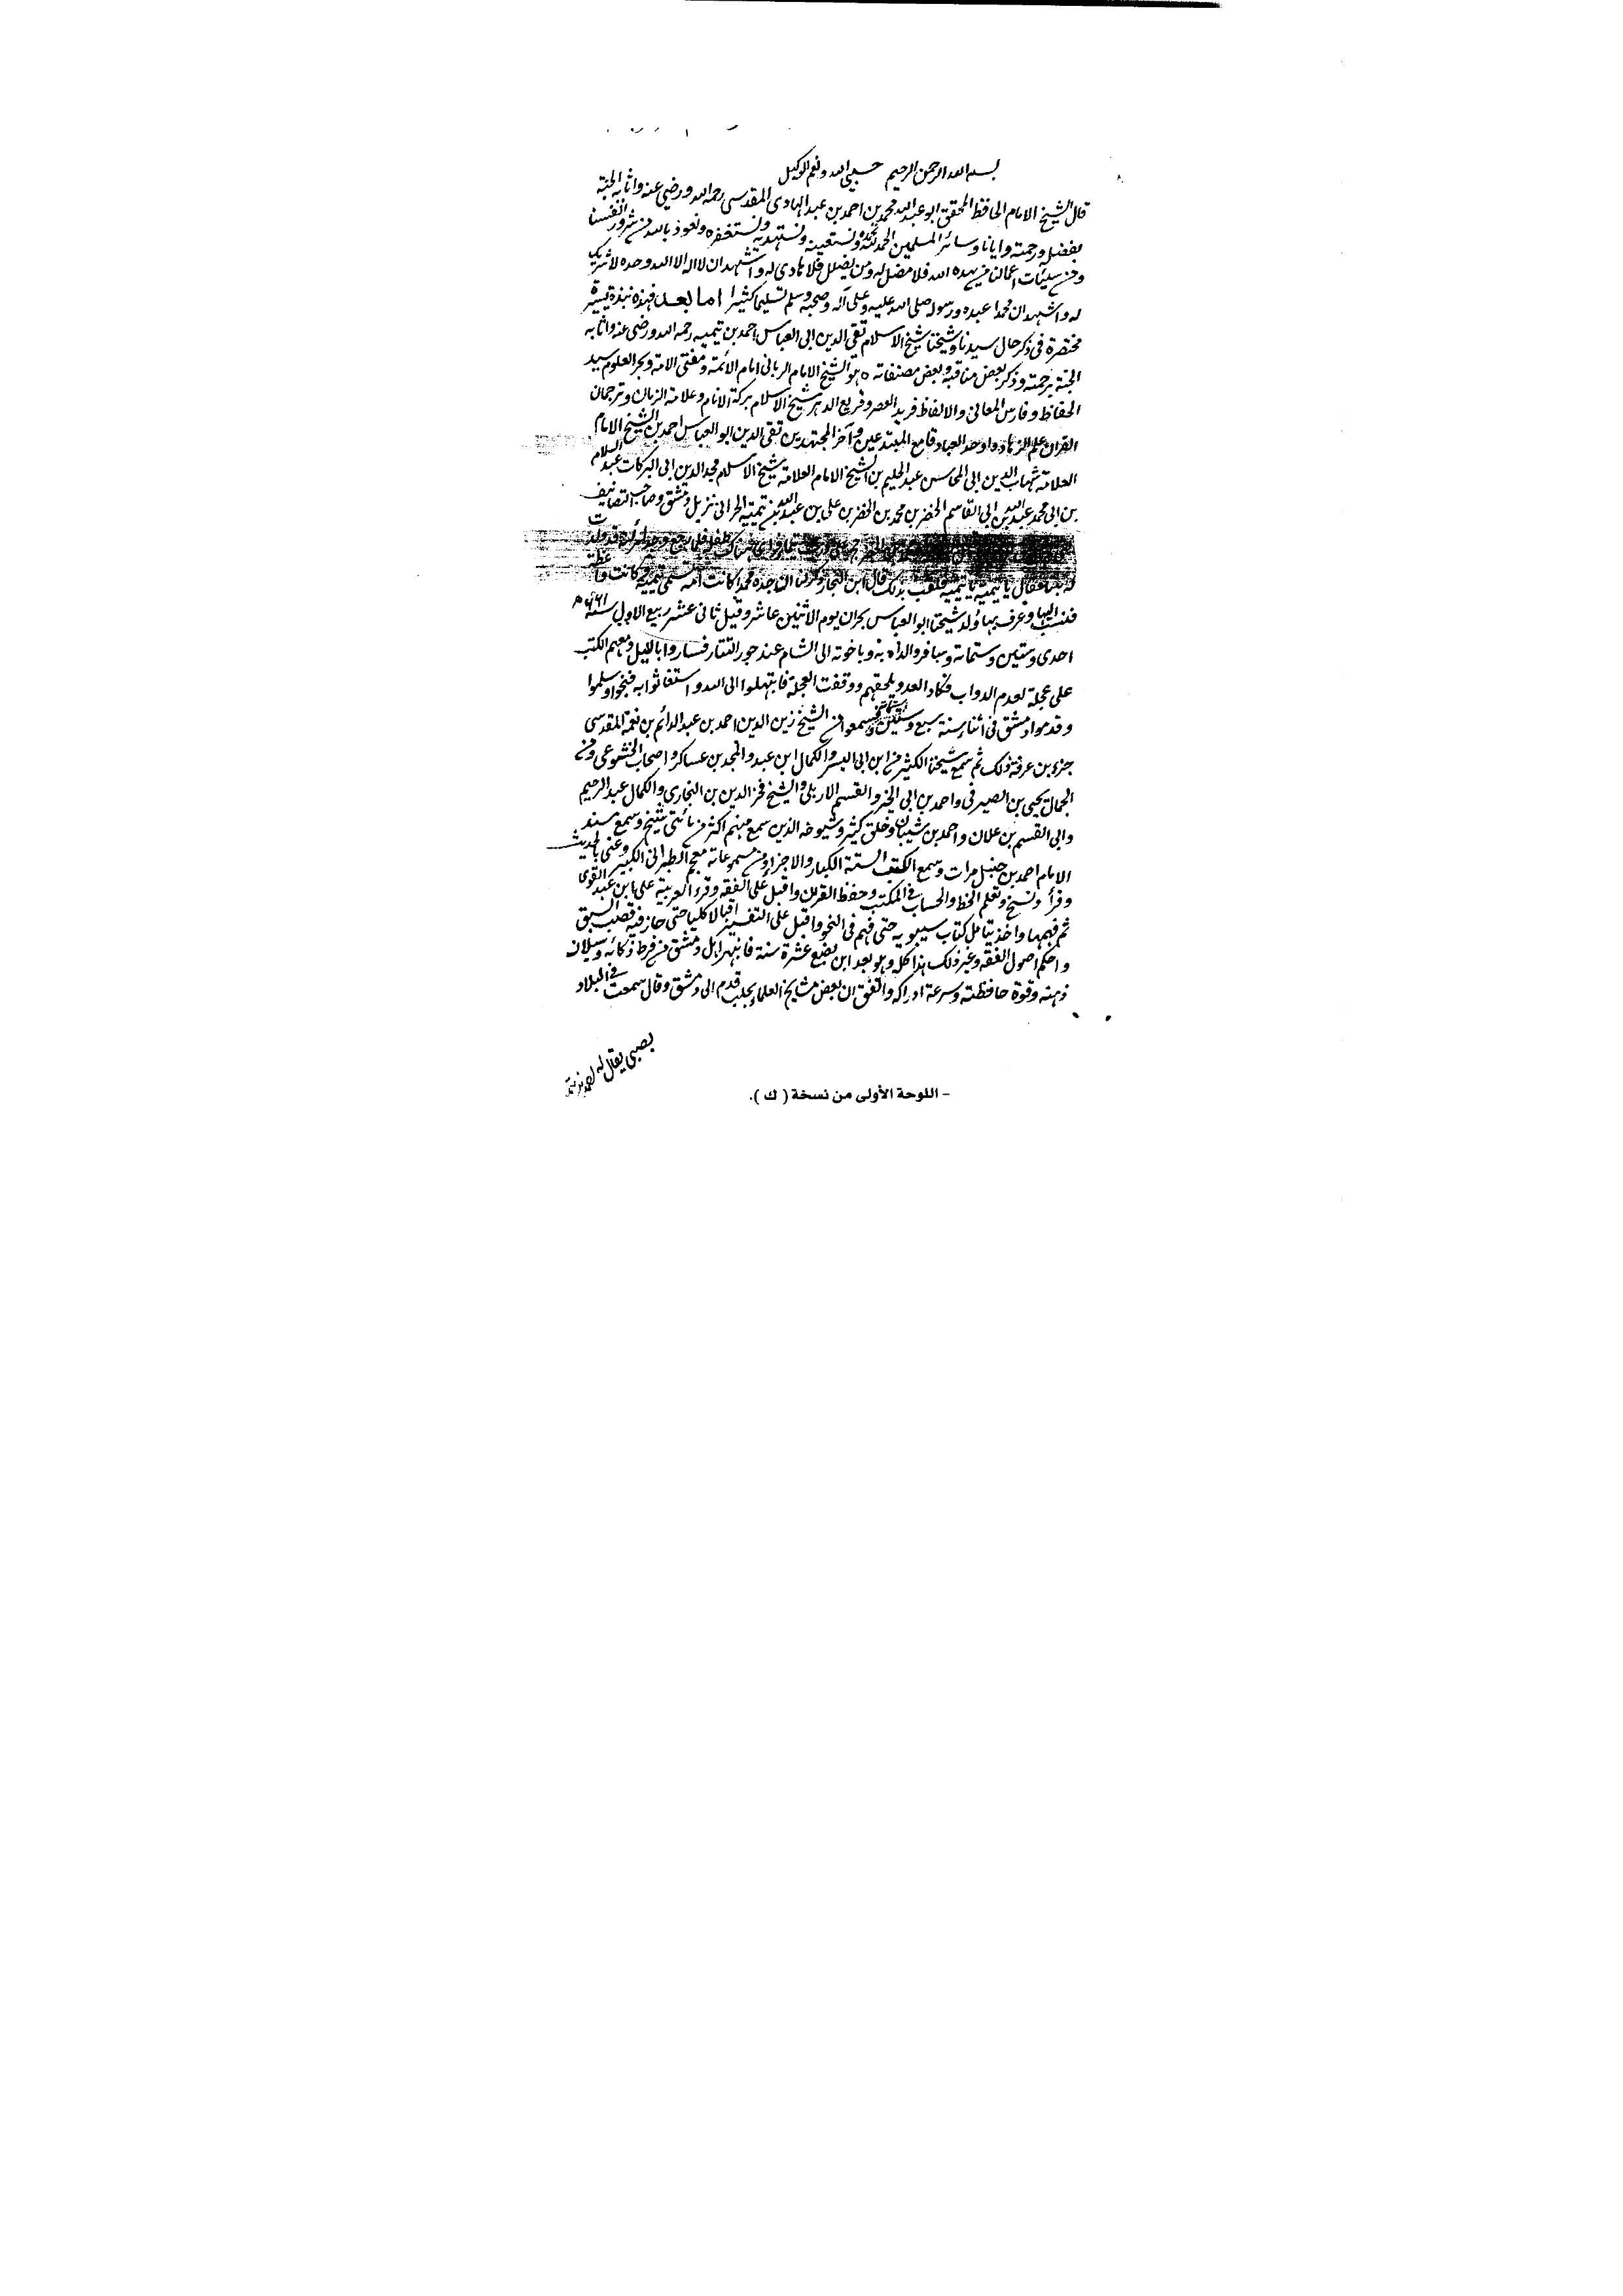 بسم الله الرحمن الرحيم حسبي الله ونعم الوكيل
قال الشيخ الامام الحافظ المحقق ابو عبد الله محمد بن احمد بن عبد الهادى المقدسي رحمه الله ورضي عنه واثابه الجنة
بفضله ورحمته وايانا وسائر المسلمين الحمد لله نحمده ونستعينه ونستهديه ونستغفره ونعوذ بالله من شرور انفسنا
ومن سيئات اعمالنا من يهده الله فلا مضل له ومن يضلل فلا هادى له واشهد ان لا اله الا الله وحده لا شريك
له واشهد ان محمدا عبده ورسوله صلى الله عليه وعلى آله وصحبه وسلم تسليما كثيرا اما بعد فهذه نبذة يسيرة
مختصرة فى ذكر حال سيدنا وشيخنا شيخ الاسلام تقى الدين ابى العباس احمد بن تيميه رحمه الله ورضى عنه واثابه
الجنة برحمته وذكر بعض مناقبه وبعض مصنفاته ه هو الشيخ الامام الربانى امام الائمة ومفتى الامة وبحر العلوم سيد
الحفاظ وفارس المعانى والالفاظ فريد العصر وقريع الدهر شيخ الاسلام بركة الانام وعلامة الزمان وترجمان
القران علم الزهاد واوحد العباد قامع المبتدعين وآخر المجتهدين تقى الدين ابو العباس احمد بن الشيخ الامام
العلامة شهاب الدين ابى المحاسن عبد الحليم بن الشيخ الامام العلامة شيخ الاسلام مجد الدين ابى البركات عبد السلام
بن ابى محمد عبد الله بن ابى القاسم الخضر بن محمد بن الخضر بن على بن عبد الله بن تيمية الحرانى نزيل دمشق وصاحب التصانيف
فلما رجع وجد امرأته قد ولدت
له بنتا فقال يا تيمية يا تيمية فلقب بذلك قال ابن النجار وذكر لنا ان جده محمدا كانت امه تسمى تيمية وكانت واعظة
فنسب اليها وعرف بها ولد شيخنا ابو العباس بحران يوم الاثنين عاشر وقيل ثانى عشر ربيع الاول سنة ٦٦١ه
احدى وستين وستمائة وسافر والداه به وباخوته الى الشام عند جور التتار فساروا بالليل ومعهم الكتب
على عجلة لعدم الدواب فكاد العدو يلحقهم ووقفت العجلة فابتهلوا الى الله واستغاثوا به فنجوا وسلموا
وقدموا دمشق فى اثناء سنة سبع وستين وستمائة فسمعوا من الشيخ زين الدين احمد بن عبد الدائم بن نعمة المقدسى
جزء بن عرفة وذلك ثم سمع شيخنا الكثير من ابن ابى اليسر والكمال ابن عبد والمجد بن عساكر واصحاب الخشوعى ومن
الجمال يحيى بن الصيرفى واحمد بن ابى الخير والقسم الاربلى والشيخ فخر الدين بن البخاري والكمال عبد الرحيم
وابى القسم بن علان واحمد بن شيبان وخلق كثير وشيوخه الذين سمع منهم اكثر من مائتى شيخ وسمع مسند
الامام احمد بن حنبل مرات وسمع الكتب الستة الكبار والاجزاء ومن مسموعاته معجم الطبرانى الكبير وعنى بالحديث
وقرأ ونسخ وتعلم الخط والحساب فى المكتب وحفظ القران واقبل على الفقه وقرء العربية على ابن عبد القوى
ثم فهمها واخذ يتامل كتاب سيبويه حتى فهم فى النحو واقبل على التفسير اقبالا كليا حتى حاز فيه قصب السبق
واحكم اصول الفقه وغير ذلك هذا كله وهو بعد ابن بضع عشرة سنة فانبهر اهل دمشق من فرط ذكائه وسيلان
ذهنه وقوة حافظته وسرعة ادراكه واتفق ان بعض مشايخ العلماء بحلب قدم الى دمشق وقال سمعت فى البلاد
بصبى يقال له احمد بن تيمية
- اللوحة الأولى من نسخة ( ك ).